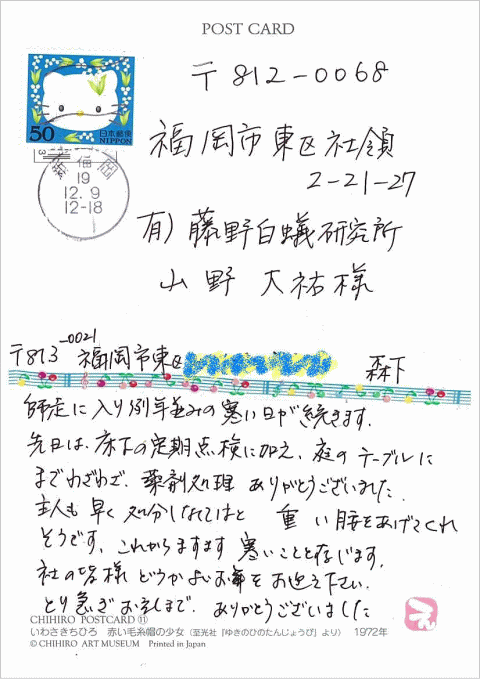 POST CARD
〒812-0068
50
日本郵便
NIPPON
福岡
19
12.9
12-18
福岡市東区社領
2-21-27
有）藤野白蟻研究所
山野 大祐様
〒813-0021
福岡市東区
森下
師走に入り例年並みの寒い日が続きます.
先日は、床下の定期点検に加え、庭のテーブルに
までわざわざ、薬剤処理 ありがとうございました.
主人も早く処分しなくてはと 重い腰をあげてくれ
そうです、これからますます寒いことと存じます.
社の皆様 どうかよいお年をお迎え下さい.
とり急ぎお礼まで、ありがとうございました
CHIHIRO POSTCARD ⑪
いわさきちひろ 赤い毛糸帽の少女（至光社『ゆきのひのたんじょうび』より） 1972年
© CHIHIRO ART MUSEUM Printed in Japan